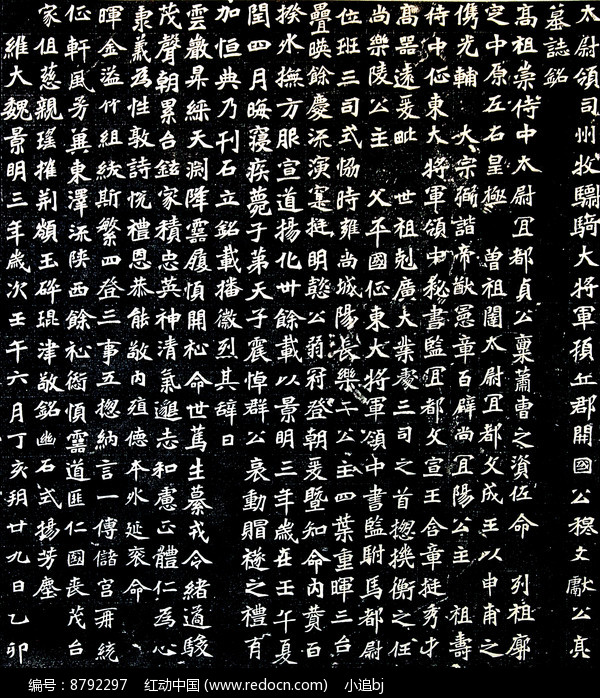 太尉領司州牧驃騎大將軍頓丘郡開國公穆文獻公亮
墓誌銘
高祖崇侍中太尉冝都貞公稟蕭曹之資佐命 列祖廓
定中原左右皇極 曾祖闥太尉冝都文成王以申甫之
儁光輔 太宗弼諧帝猷憲章百辟尚冝陽公主 祖壽
侍中征東大將軍領中秘書監冝都文宣王含章挺秀才
高器遠爰毗 世祖剋廣大業處三司之首揔機衡之任
尚樂陵公主 父平國征東大將軍領中書監駙馬都尉
位班三司式協時雍尚城陽長樂二公主四葉重暉三台
疊暎餘慶流演寔挺明懿公弱冠登朝爰暨知命內賛百
揆外撫方服宣道揚化卅餘載以景明三年歲在壬午夏
閏四月晦寢疾薨于第天子震悼群公哀動賵襚之禮有
加恒典乃刊石立銘載播徽烈其辭曰
雲巖昇綵天淵降靈履順開祉命世篤生纂戎令緒邁駿
茂聲朝累台鉉家積忠英神清氣邈志和慮正體仁為心
秉義為性敦詩悅禮恩恭能敬內殖德本外延衮命
暉金溢竹組紱斯繁四登三事五揔納言一傅儲宮再統
征軒風芳冀東澤流陝西餘祉銜慎靈道匪仁國喪茂台
家徂慈親瑤摧荊嶺玉碎琨津敬銘幽石式揚芳塵
維大魏景明三年歲次壬午六月丁亥朔廿九日乙卯
编号：8792297 红动中国 (www.redocn.com) 小追bj